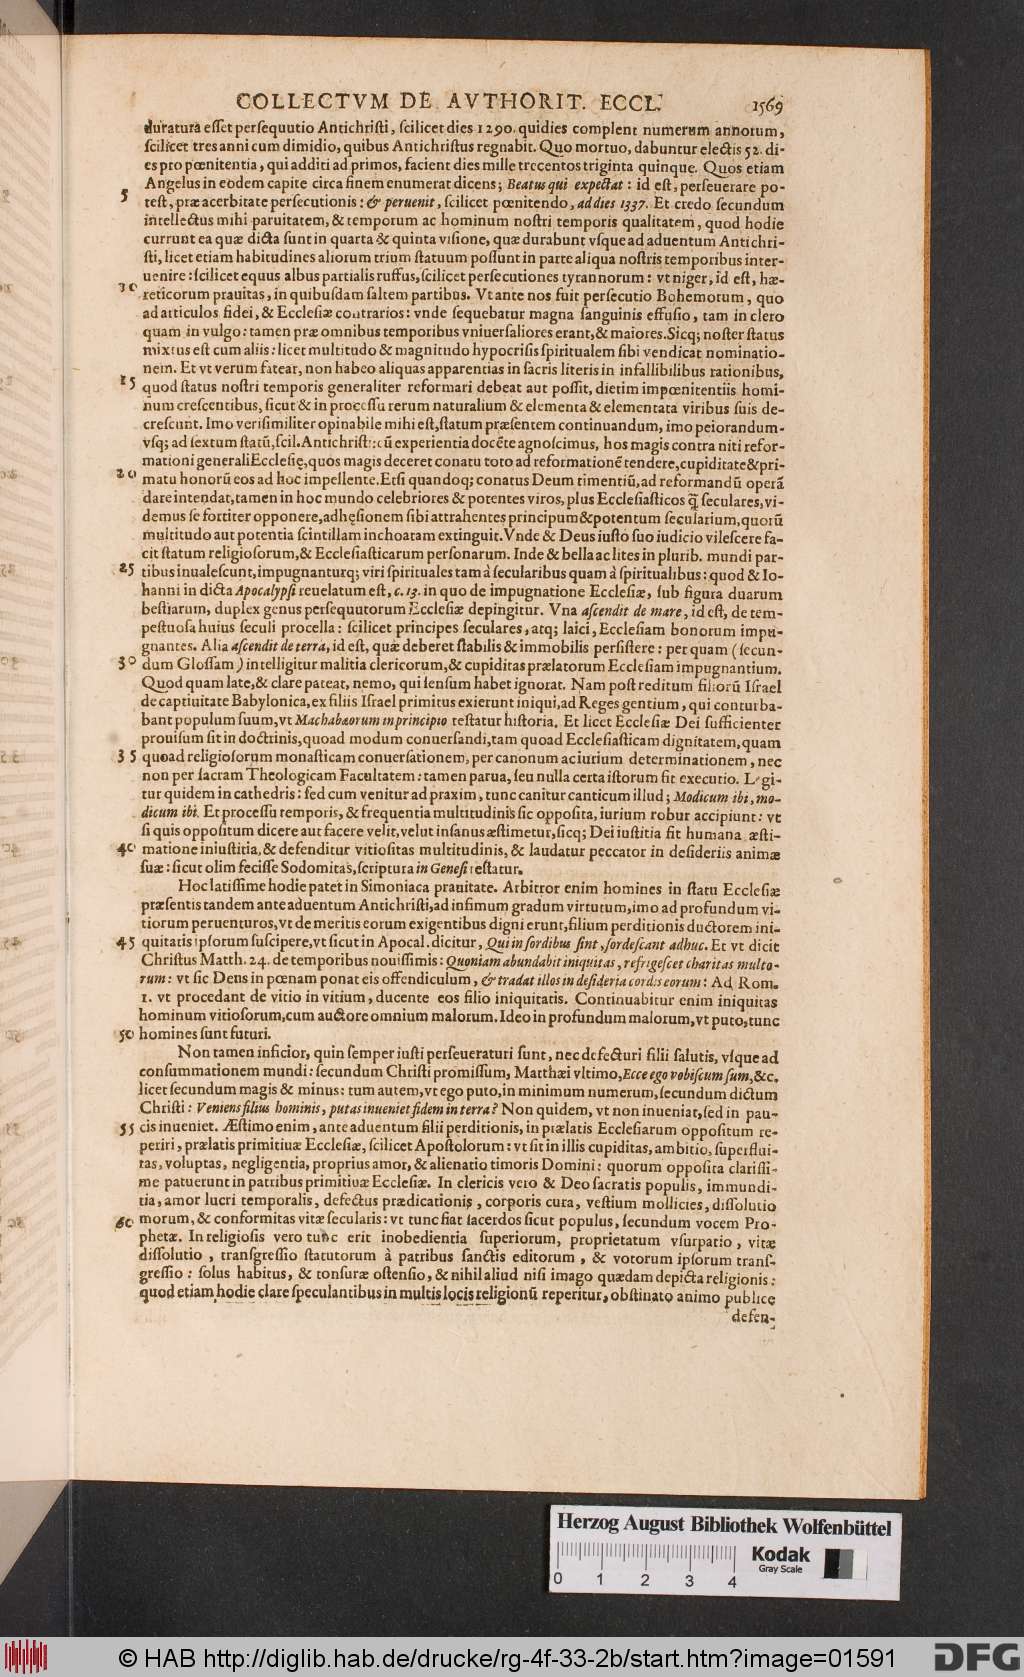 COLLECTVM DE AVTHORIT. ECCL. 1569
duratura esset persequutio Antichristi, scilicet dies 1290. qui dies complent numerum annorum,
scilicet tres anni cum dimidio, quibus Antichristus regnabit. Quo mortuo, dabuntur electis 52. di-
es pro pœnitentia, qui additi ad primos, facient dies mille trecentos triginta quinque. Quos etiam
Angelus in eodem capite circa finem enumerat dicens; Beatus qui expectat: id est, perseuerare po-
5 test, præ acerbitate persecutionis: & peruenit, scilicet pœnitendo, ad dies 1337. Et credo secundum
intellectus mihi paruitatem, & temporum ac hominum nostri temporis qualitatem, quod hodie
currunt ea quæ dicta sunt in quarta & quinta visione, quæ durabunt vsque ad aduentum Antichri-
sti, licet etiam habitudines aliorum trium statuum possunt in parte aliqua nostris temporibus inter-
uenire: scilicet equus albus partialis ruffus, scilicet persecutiones tyrannorum: vt niger, id est, hæ-
10 reticorum prauitas, in quibusdam saltem partibus. Vt ante nos fuit persecutio Bohemorum, quo
ad articulos fidei, & Ecclesiæ contrarios: vnde sequebatur magna sanguinis effusio, tam in clero
quam in vulgo: tamen præ omnibus temporibus vniuersaliores erant, & maiores. Sicq; noster status
mixtus est cum aliis: licet multitudo & magnitudo hypocrisis spiritualem sibi vendicat nominatio-
nem. Et vt verum fatear, non habeo aliquas apparentias in sacris literis in infallibilibus rationibus,
15 quod status nostri temporis generaliter reformari debeat aut possit, dietim impœnitentiis homi-
num crescentibus, sicut & in processu rerum naturalium & elementa & elementata viribus suis de-
crescunt. Imo verisimiliter opinabile mihi est, statum præsentem continuandum, imo peiorandum
vsq; ad sextum statū, scil. Antichristi: cū experientia docēte agnoscimus, hos magis contra niti refor-
mationi generali Ecclesię, quos magis deceret conatu toto ad reformationē tendere, cupiditate & pri-
20 matu honorū eos ad hoc impellente. Etsi quandoq; conatus Deum timentiū, ad reformandū operā
dare intendat, tamen in hoc mundo celebriores & potentes viros, plus Ecclesiasticos q̃ seculares, vi-
demus se fortiter opponere, adhęsionem sibi attrahentes principum & potentum secularium, quorū
multitudo aut potentia scintillam inchoatam extinguit. Vnde & Deus iusto suo iudicio vilescere fa-
cit statum religiosorum, & Ecclesiasticarum personarum. Inde & bella ac lites in plurib. mundi par-
25 tibus inualescunt, impugnanturq; viri spirituales tam à secularibus quam à spiritualibus: quod & Io-
hanni in dicta Apocalypsi reuelatum est, c. 13. in quo de impugnatione Ecclesiæ, sub figura duarum
bestiarum, duplex genus persequutorum Ecclesiæ depingitur. Vna ascendit de mare, id est, de tem-
pestuosa huius seculi procella: scilicet principes seculares, atq; laici, Ecclesiam bonorum impu-
gnantes. Alia ascendit de terra, id est, quæ deberet stabilis & immobilis persistere: per quam (secun-
30 dum Glossam) intelligitur malitia clericorum, & cupiditas prælatorum Ecclesiam impugnantium.
Quod quam late, & clare pateat, nemo, qui sensum habet ignorat. Nam post reditum filiorū Israel
de captiuitate Babylonica, ex filiis Israel primitus exierunt iniqui, ad Reges gentium, qui conturba-
bant populum suum, vt Machabæorum in principio testatur historia. Et licet Ecclesiæ Dei sufficienter
prouisum sit in doctrinis, quoad modum conuersandi, tam quoad Ecclesiasticam dignitatem, quam
35 quoad religiosorum monasticam conuersationem, per canonum ac iurium determinationem, nec
non per sacram Theologicam Facultatem: tamen parua, seu nulla certa istorum fit executio. Legi-
tur quidem in cathedris: sed cum venitur ad praxim, tunc canitur canticum illud; Modicum ibi, mo-
dicum ibi. Et processu temporis, & frequentia multitudinis sic opposita, iurium robur accipiunt: vt
si quis oppositum dicere aut facere velit, velut insanus æstimetur, sicq; Dei iustitia fit humana æsti-
40 matione iniustitia, & defenditur vitiositas multitudinis, & laudatur peccator in desideriis animæ
suæ: sicut olim fecisse Sodomitas, scriptura in Genesi testatur.
Hoc latissime hodie patet in Simoniaca prauitate. Arbitror enim homines in statu Ecclesiæ
præsentis tandem ante aduentum Antichristi, ad infimum gradum virtutum, imo ad profundum vi-
tiorum peruenturos, vt de meritis eorum exigentibus digni erunt, filium perditionis ductorem ini-
45 quitatis ipsorum suscipere, vt sicut in Apocal. dicitur, Qui in sordibus sint, sordescant adhuc. Et vt dicit
Christus Matth. 24. de temporibus nouissimis: Quoniam abundabit iniquitas, refrigescet charitas multo-
rum: vt sic Deus in pœnam ponat eis offendiculum, & tradat illos in desideria cordis eorum: Ad Rom.
1. vt procedant de vitio in vitium, ducente eos filio iniquitatis. Continuabitur enim iniquitas
hominum vitiosorum, cum auctore omnium malorum. Ideo in profundum malorum, vt puto, tunc
50 homines sunt futuri.
Non tamen inficior, quin semper iusti perseueraturi sunt, nec defecturi filii salutis, vsque ad
consummationem mundi: secundum Christi promissum, Matthæi vltimo, Ecce ego vobiscum sum, &c.
licet secundum magis & minus: tum autem, vt ego puto, in minimum numerum, secundum dictum
Christi: Veniens filius hominis, putas inueniet fidem in terra? Non quidem, vt non inueniat, sed in pau-
55 cis inueniet. Æstimo enim, ante aduentum filii perditionis, in prælatis Ecclesiarum oppositum re-
periri, prælatis primitiuæ Ecclesiæ, scilicet Apostolorum: vt sit in illis cupiditas, ambitio, superflui-
tas, voluptas, negligentia, proprius amor, & alienatio timoris Domini: quorum opposita clarissi-
me patuerunt in patribus primitiuæ Ecclesiæ. In clericis vero & Deo sacratis populis, immundi-
tia, amor lucri temporalis, defectus prædicationis, corporis cura, vestium mollicies, dissolutio
60 morum, & conformitas vitæ secularis: vt tunc fiat sacerdos sicut populus, secundum vocem Pro-
phetæ. In religiosis vero tunc erit inobedientia superiorum, proprietatum vsurpatio, vitæ
dissolutio, transgressio statutorum à patribus sanctis editorum, & votorum ipsorum trans-
gressio: solus habitus, & tonsuræ ostensio, & nihil aliud nisi imago quædam depicta religionis:
quod etiam hodie clare speculantibus in multis locis religionū reperitur, obstinato animo publice
defen-
Herzog August Bibliothek Wolfenbüttel
Kodak
Gray Scale
0 1 2 3 4
© HAB http://diglib.hab.de/drucke/rg-4f-33-2b/start.htm?image=01591
DFG